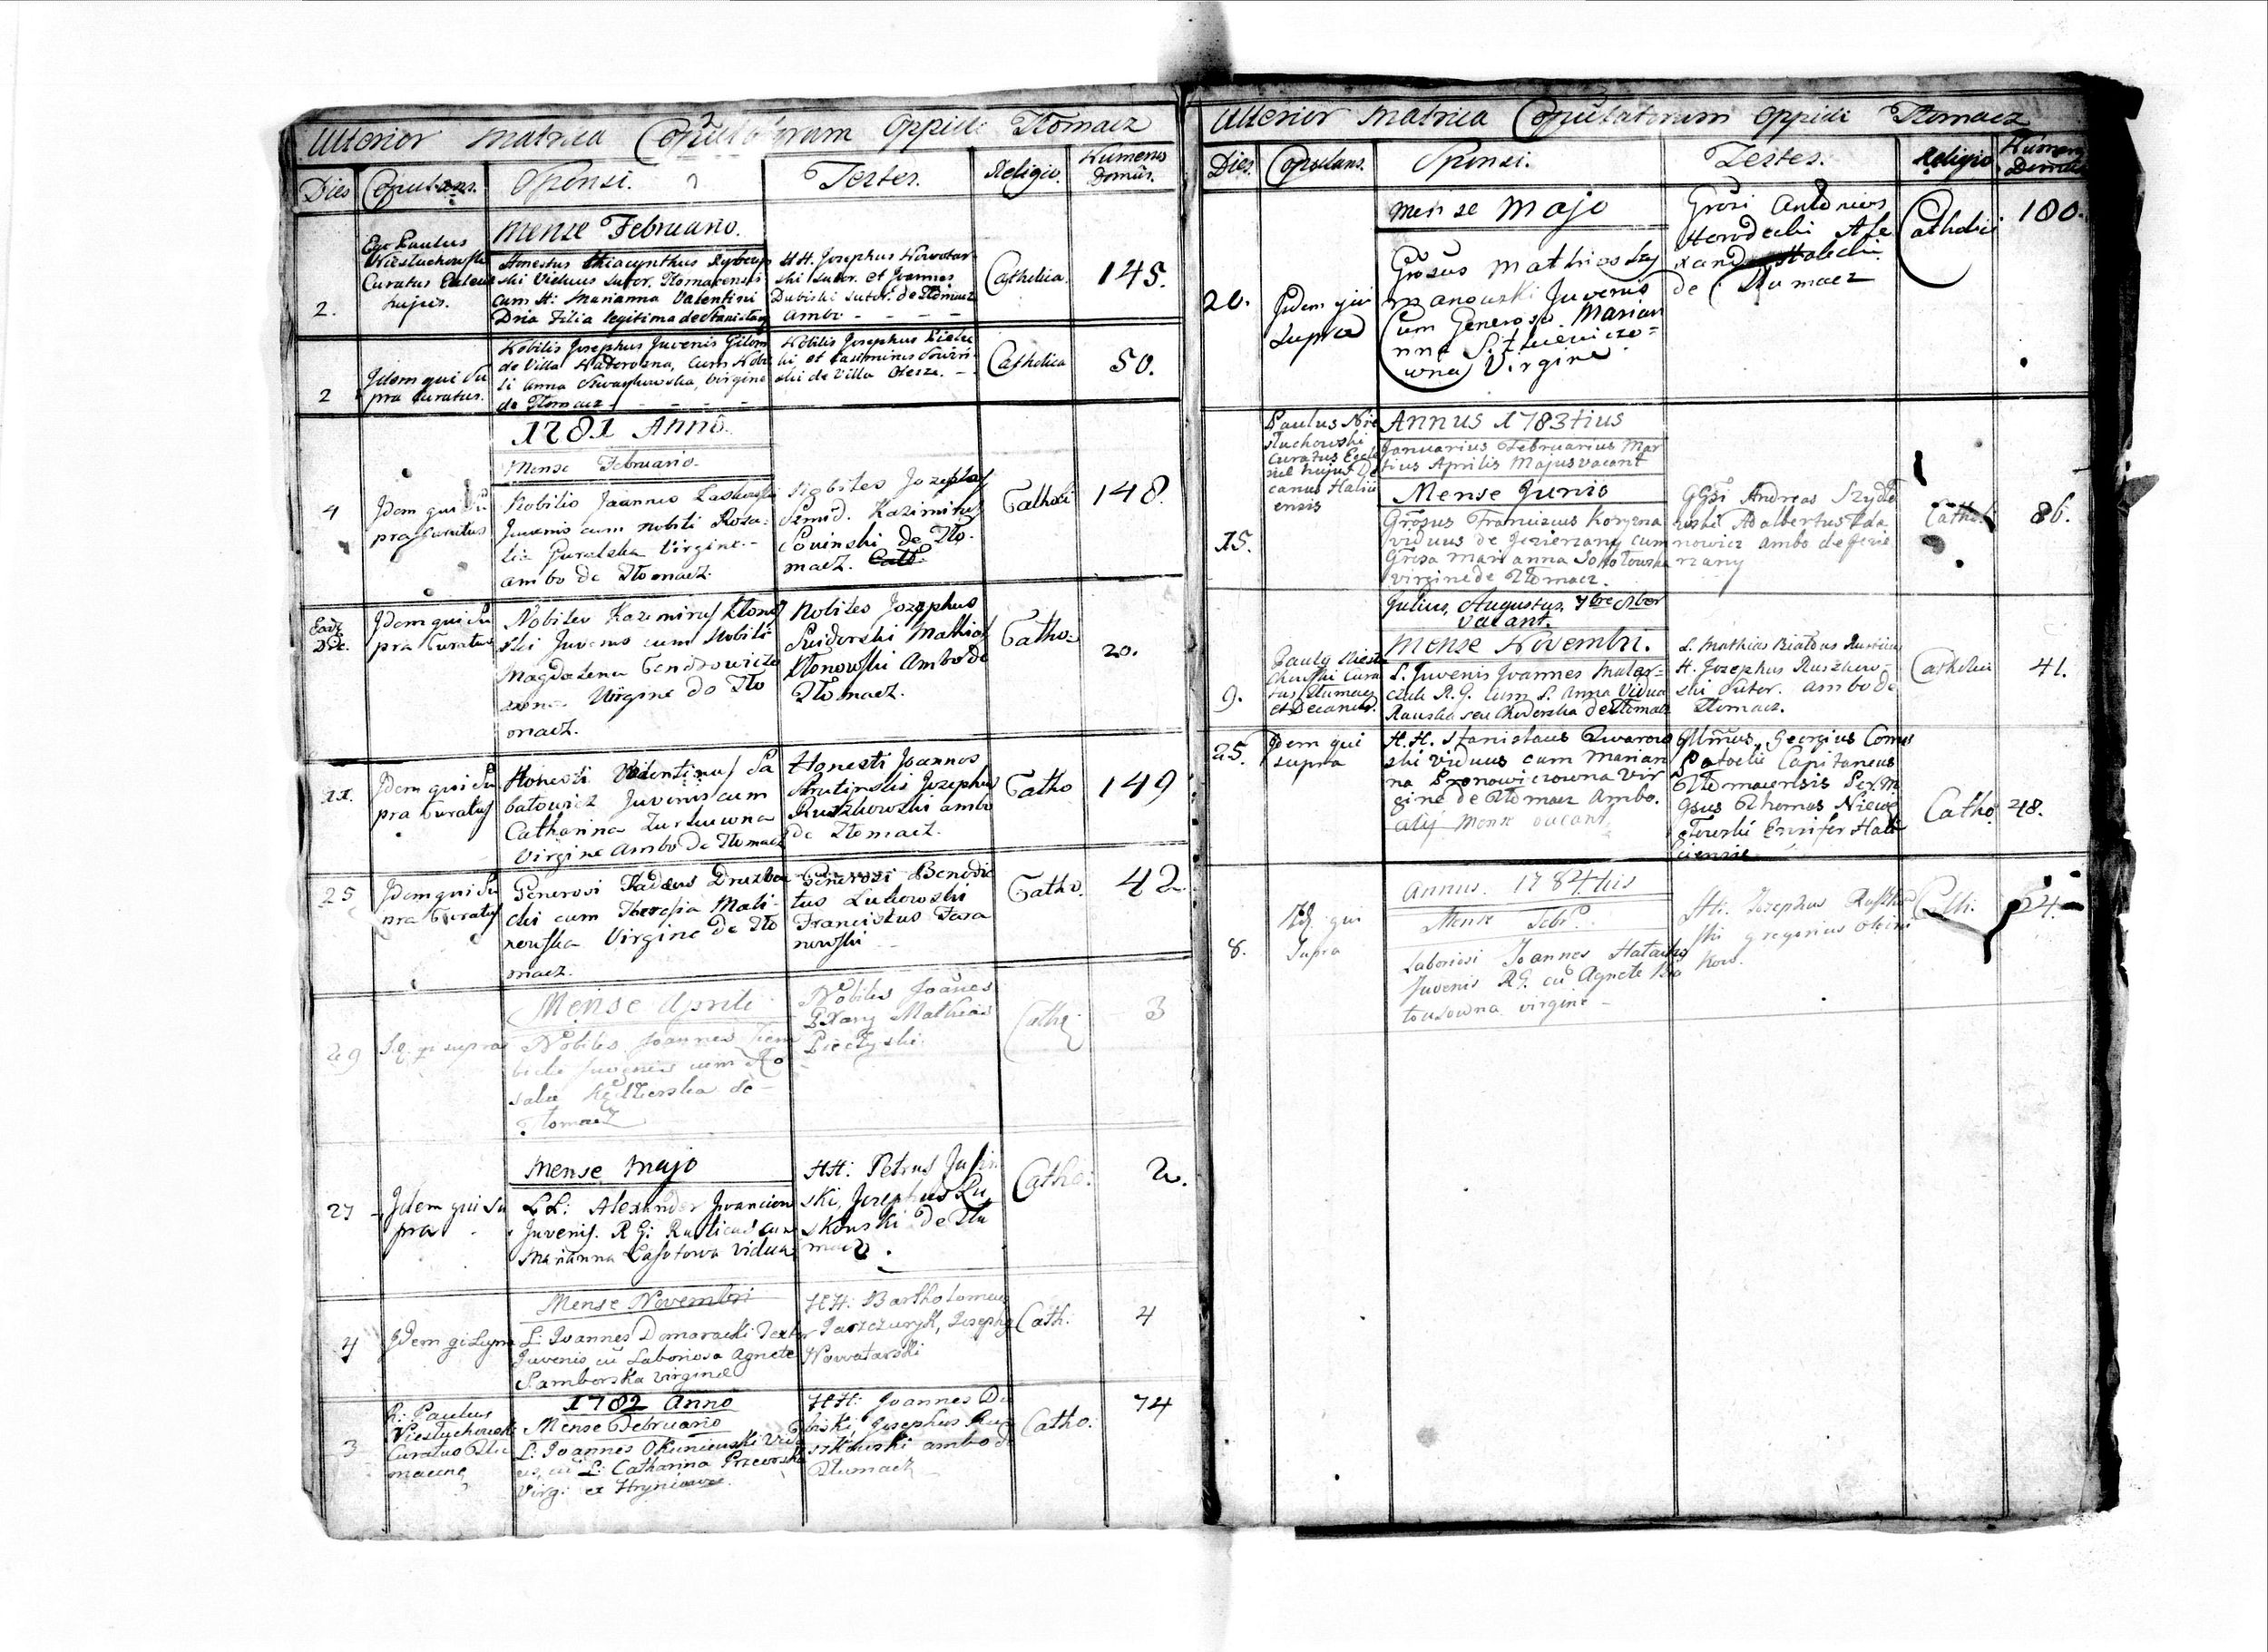 Ulterior Matrica Copulatorum Oppidi Tłomacz
Dies Copulans. Sponsi. Testes. Religio. Numerus Domûs.
Mense Februario.
2.
Ego Paulus
Niestuchowski
Curatus Eccleae
hujus.
Honestus Hiacynthus Rybczyń
ski Viduus Sutor. Tłomacensis
cum H: Marianna Valentini
Dnia Filia legitima de Stanisław
HH. Josephus Nowotar
ski Sutor. et Joannes
Dubiski Sutor. de Tłomacz
Ambo - - - -
Catholica.
145.
2
Idem qui Su
pra Curatus.
Nobilis Josephus Juvenis
de Villa Nadorozna, Cum Nobi
li Anna Virgine
de Tłomacz - - - -
Nobilis Josephus
ki et Casimirus
ski de Villa Olesza. -
Catholica
50.
1781 Anno.
Mense Februario.
4
Idem qui Su
pra Curatus
Nobilis Joannes Laskowski
Juvenis cum Nobili Rosa:
lia Guralska Virgine. -
ambo de Tłomacz.
Nobiles Jozephus
Semid. Kazimirus
Souinski de Tło.
macz.
Catholi
148.
Eade
Die.
Idem qui Su
pra Curatus
Nobiles Kazimirus Kłonow
ski Juvenis cum Nobili
Magdalena
Virgine de Tło
macz.
Nobiles Jozephus
Swiderski Mathias
Kłonowski Ambo de
Tłomacz.
Catho:
20.
11.
Idem qui Su
pra Curatus
Honesti Valentinus Sa
batowicz Juvenis cum
Catharina
Virgine Ambo de Tłomacz
Honesti Joannes
Strutinski Jozephus
Ruszkowski ambo
de Tłomacz.
Catho
149
25
Idem qui Su
pra Curatus
Generosi Tadeus Druzba
cki cum Theresia Mali:
nowska Virgine de Tło
macz.
Generosi Benedic
tus Lukowski
Franciscus Tara
nowski
Catho.
42
Mense Aprili
29
I. q. qi supra
Nobiles Joannes Ziem
bicki Juvenis cum Ro
salia de
Tłomacz
Nobiles Joanes
Mathias
Pieczyski
Cathc:
3
Mense Majo
27
Idem qui Su
pra
LL: Alexander Iwancion
Juvenis. R G: Rusticus cum
Marianna Lasotowa Vidua
HH: Petrus Jasin
ski, Josephus Ru
skowski de Tłu
macz.
Catho:
2.
Mense Novembri
4
Idem qi Supra
L: Joannes Domaracki Textor
Juvenis cũ Laboriosa Agnete
Samborska Virgine
HH: Bartholomeus
Jaszczuryk, Josephus
Nowotarski
Cath:
4
1782 Anno
Mense Februario
3
R: Paulus
Niestuchowski
Curatus Tłu
macens
L: Joannes Okuniewski Vidu
us, cũ L: Catharina Przeorska
Virg: ex Hryniowce.
HH: Joannes Du
biski, Josephus Ru
szkowski ambo de
Tłumacz
Catho:
74
Ulterior Matrica Copulatorum Oppidi Tłomacz
Dies. Copulans. Sponsi. Testes. Religio Numerus Domûs
Mense Majo
20.
Idem qui
supra
Grosus Mathias Szy
manowski Juvenis
Cum Generosa Marian
na
wna Virgine
Grosi Antonius
Horodecki Ale
xander
de Tłumacz
Catholici
180.
Annus 1783tius
Januarius Februarius Mar
tius Aprilis Majus vacant
Mense Junio
15.
Paulus Nie
stuchowski
Curatus Eccle
siae hujus De
canus Halici
ensis
Grosus Franciscus Koryzna
viduus de Jezierzany cum
Grosa Marianna Sokołowska
virgine de Tłomacz.
GGsi Andreas Szydło
wski Adalbertus Ada
mowicz ambo de Jezie
rzany
Catho.
86.
Julius, Augustus, 7bre 8ber
vacant.
Mense Novembri.
9.
Paulus Niestu
chowski Cura
tus Tłumacz
et Decanus.
L. Juvenis Joannes Malar=
czuk R.G. cum L. Anna Vidua
Rauska seu Choderska de Tłomacz
L. Mathias Białous Rusticus
H. Jozephus Ruszkow-
ski Sutor. ambo de
Tłomacz.
Catholici
41.
25.
Idem qui
supra
H.H. Stanislaus Twarow
ski viduus cum Marian
na Bronowiczowna Vir
gine de Tłomacz Ambo.
alij Mense vacant.
Illmus Georgius Comes
Potocki Capitaneus
Tłomacensis Per. M
Gsus Thomas Niewe
Ensifer Hali
ciensis
Catho.
48.
Annus. 1784tus
Mense Febr.
8.
Id. qui
Supra
Laboriosi Joannes
Juvenis R.G. cũ Agnete Bia
tousowna virgine -
HH. Josephus Ruszkow
ski Gregorius
kow.
Cath:
54.